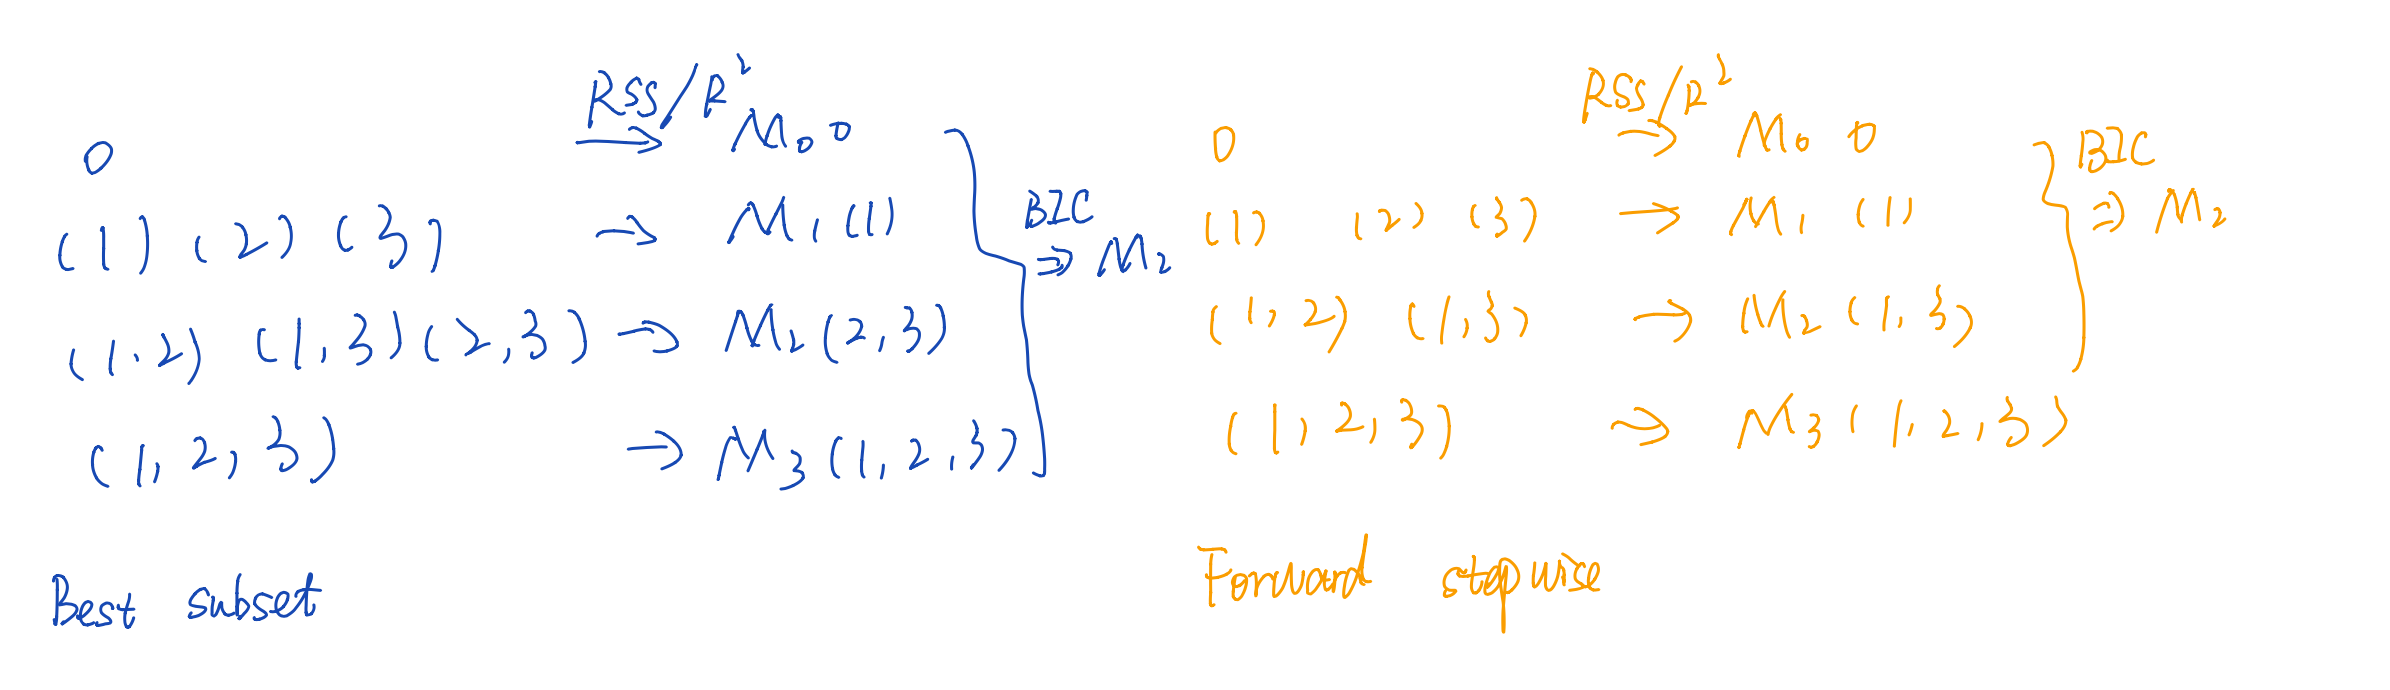 RSS/R²
0 → M₀ 0
(1) (2) (3) → M₁ (1)
(1.2) (1,3) (2,3) → M₂ (2,3)
(1,2,3) → M₃ (1,2,3)
BIC
⇒ M₂
Best subset
RSS/R²
0 → M₀ 0
(1) (2) (3) → M₁ (1)
(1,2) (1,3) → M₂ (1,3)
(1,2,3) → M₃ (1,2,3)
BIC
⇒ M₂
Forward stepwise